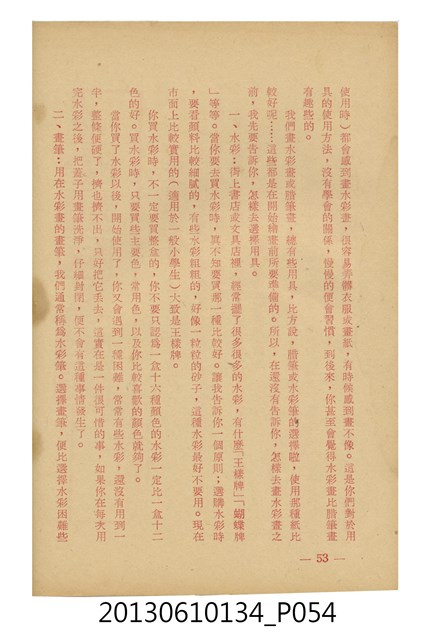 使用時)都會感到畫水彩畫，很容易弄髒衣服或畫紙，有時候感到畫不像。這是你們對於用
具的使用方法，沒有學會的關係，慢慢的便會習慣，到後來，你甚至會覺得水彩畫比腊筆畫
有趣些的。
我們畫水彩畫或腊筆畫，總有些用具，比方說，腊筆或水彩筆的選擇啦，使用那種紙比
較好呢……這些都是在開始繪畫前所要準備的。所以，在還沒有告訴你，怎樣去畫水彩畫之
前，我先要告訴你，怎樣去選擇用具。
一、水彩：街上書店或文具店裡，經常擺了很多很多的水彩，有什麼「王樣牌」「蝴蝶牌
」等等。當你要去買水彩時，眞不知要買那一種比較好。讓我告訴你一個原則：選購水彩時
，要看顏料比較細膩的，有些水彩粗粗的，好像一粒粒的砂子，這種水彩最好不要用。現在
市面上比較實用的(適用於一般小學生)大致是王樣牌。
你買水彩時，不一定要買整盒的，你不要只認爲一盒十六種顏色的水彩一定比一盒十二
色的好。買水彩時，只要買些主要色，常用色，以及你比較喜歡的顏色就夠了。
當你買了水彩以後，開始使用了，你又會遇到一種困難，常常有些水彩，還沒有用到一
半，整條便硬了，擠也擠不出，只好把它丟去，這實在是一件很可惜的事，如果你在每次用
完水彩之後，把蓋子用畫筆洗淨，仔細封閉，便不會有這種事情發生了。
二、畫筆：用在水彩畫的畫筆，我們通常稱爲水彩筆。選擇畫筆，便比選擇水彩困難些
— 53 —
20130610134_P054